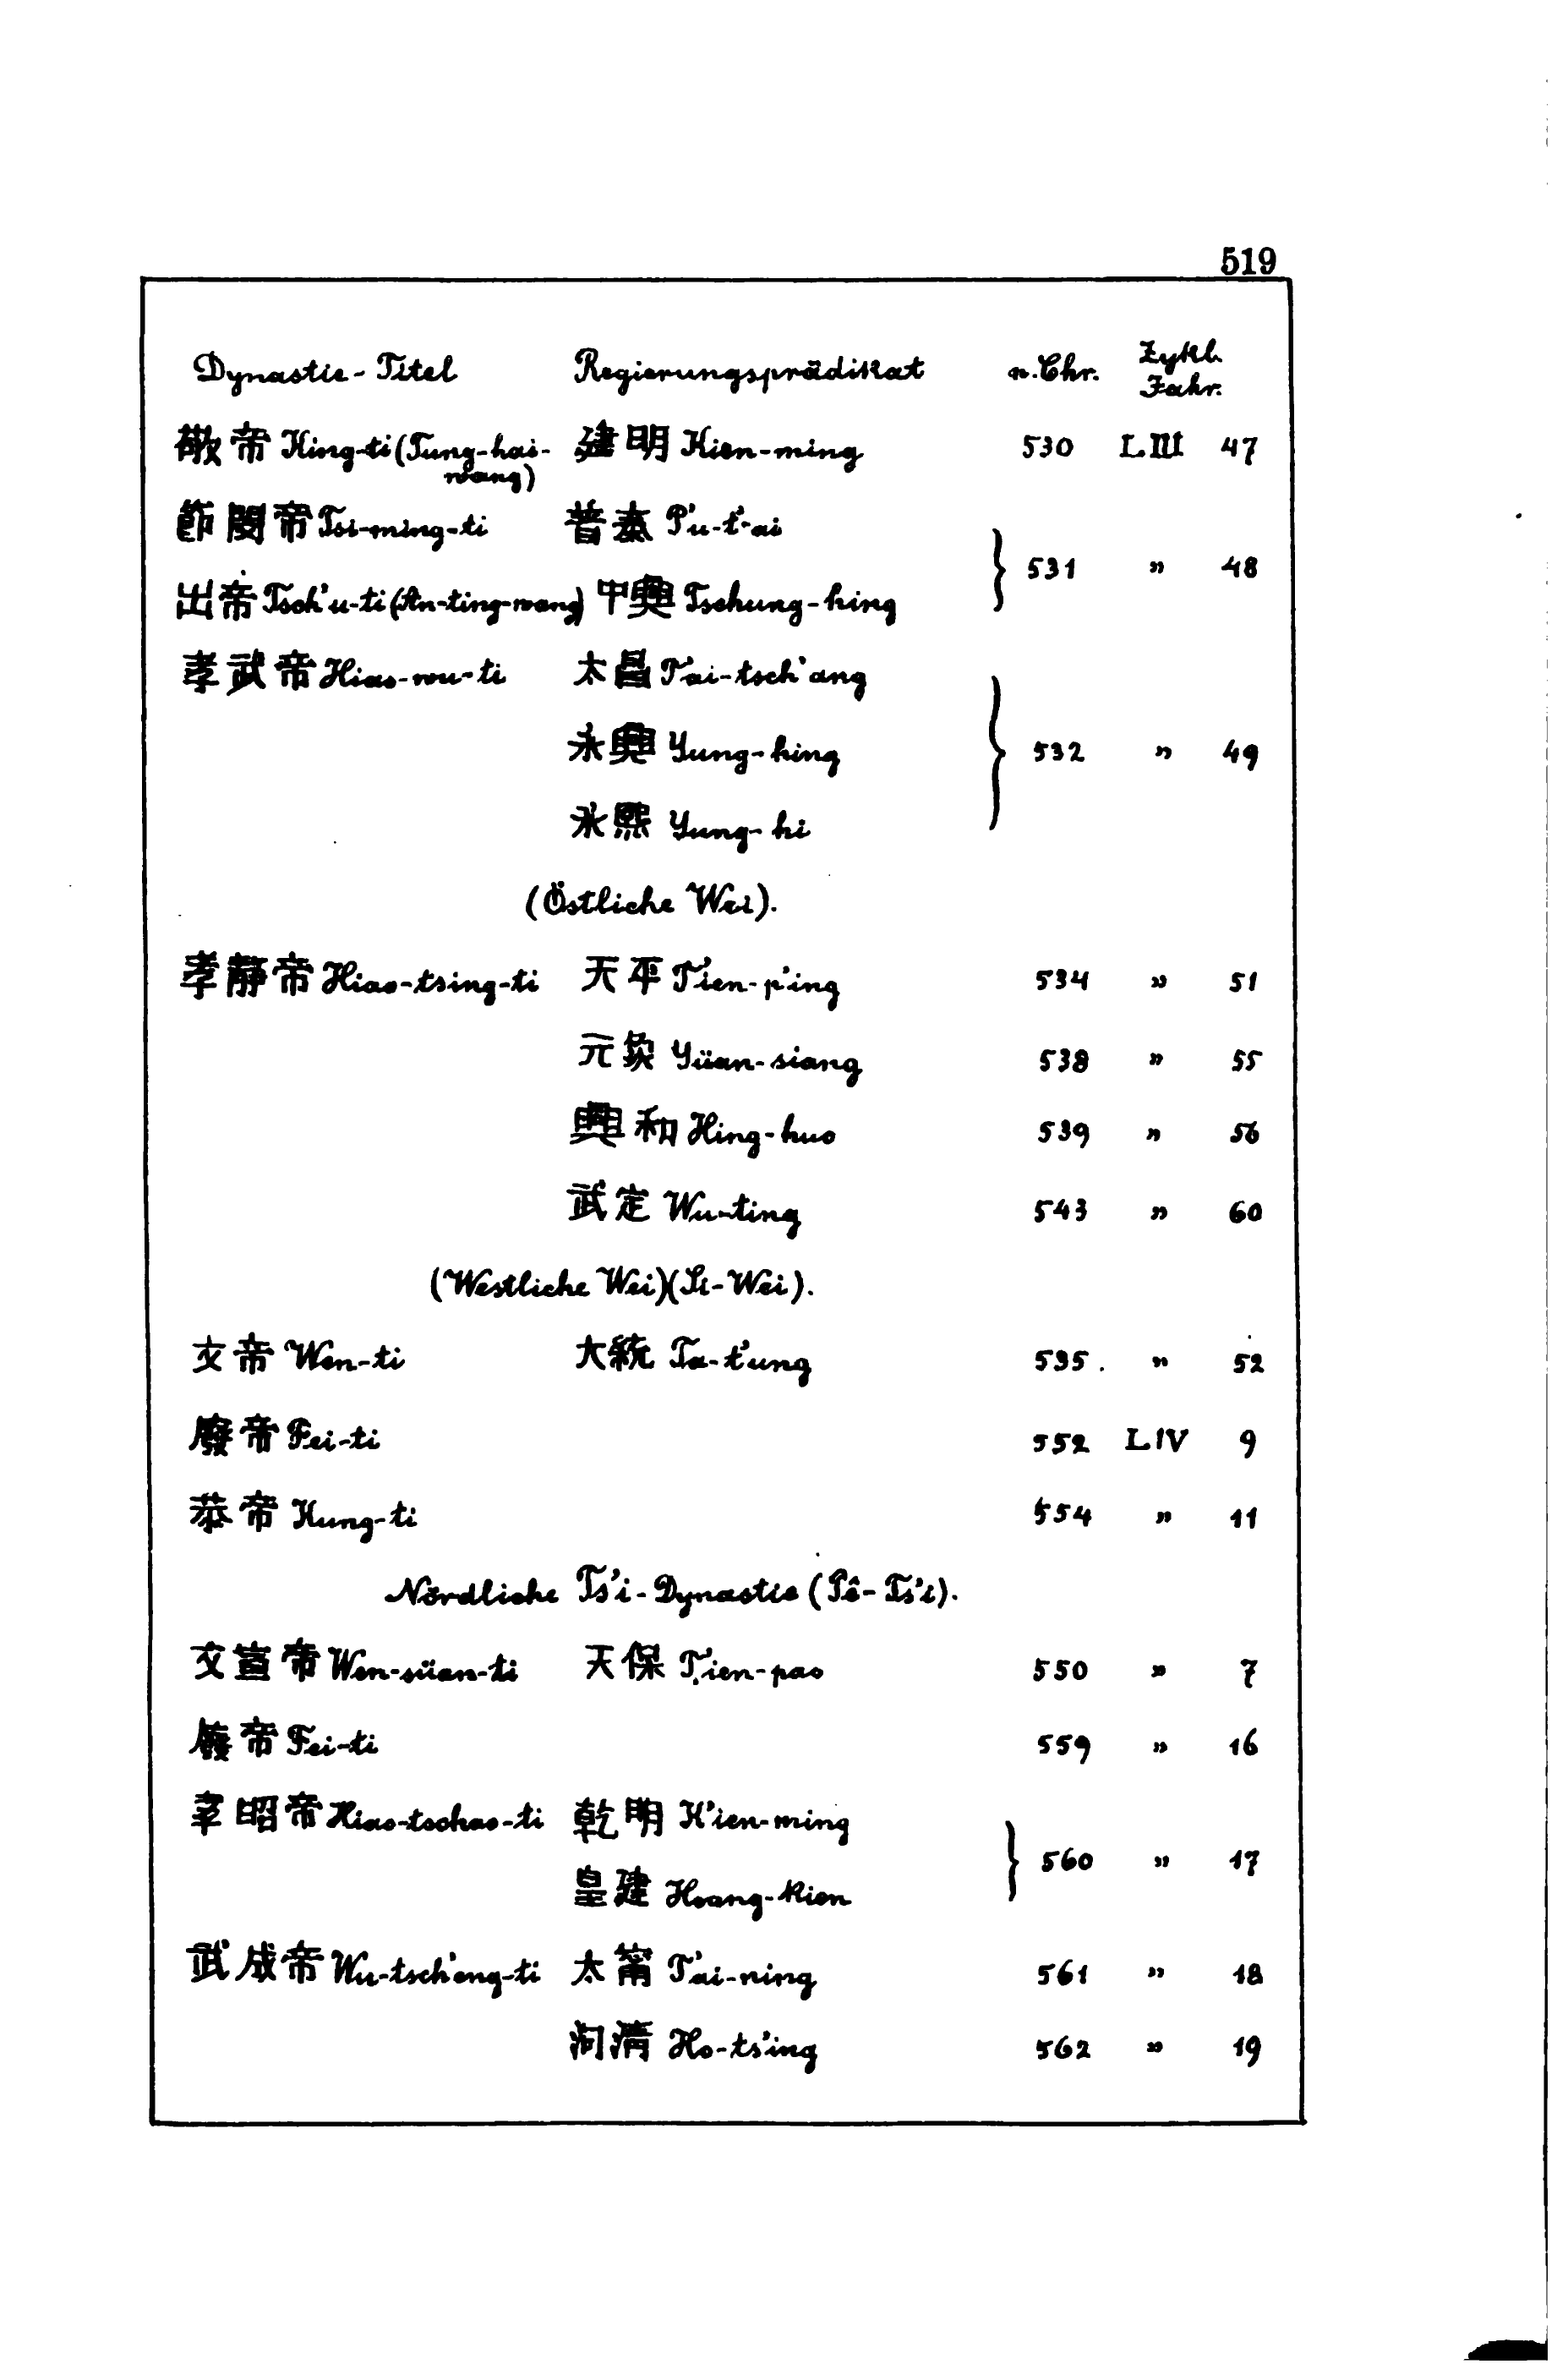 519
Dynastie-Titel Regierungsprädikat n. Chr. Zykl. Jahr.
敬帝 King-ti (Tung-hai-wang) 建明 Kien-ming 530 LIII 47
節閔帝 Tsi-ming-ti 普泰 P'u-t'ai
531 " 48
出帝 Tsch'u-ti (An-ting-wang) 中興 Tschung-hing
孝武帝 Hiao-wu-ti 太昌 T'ai-tsch'ang
永興 Yung-hing 532 " 49
永熙 Yung-hi
(Östliche Wei).
孝静帝 Hiao-tsing-ti 天平 T'ien-p'ing 534 " 51
元 Yüan-siang 538 " 55
興和 Hing-huo 539 " 56
武定 Wu-ting 543 " 60
(Westliche Wei)(Si-Wei).
文帝 Wen-ti 大統 Ta-t'ung 535. " 52
廢帝 Fei-ti 552 LIV 9
恭帝 Kung-ti 554 " 11
Nördliche Ts'i-Dynastie (Pê-Ts'i).
文宣帝 Wen-süan-ti 天保 T'ien-pao 550 " 7
廢帝 Fei-ti 559 " 16
孝昭帝 Hiao-tschao-ti 乾明 K'ien-ming
560 " 17
皇建 Hoang-kien
武成帝 Wu-tsch'eng-ti 太甯 T'ai-ning 561 " 18
河清 Ho-ts'ing 562 " 19